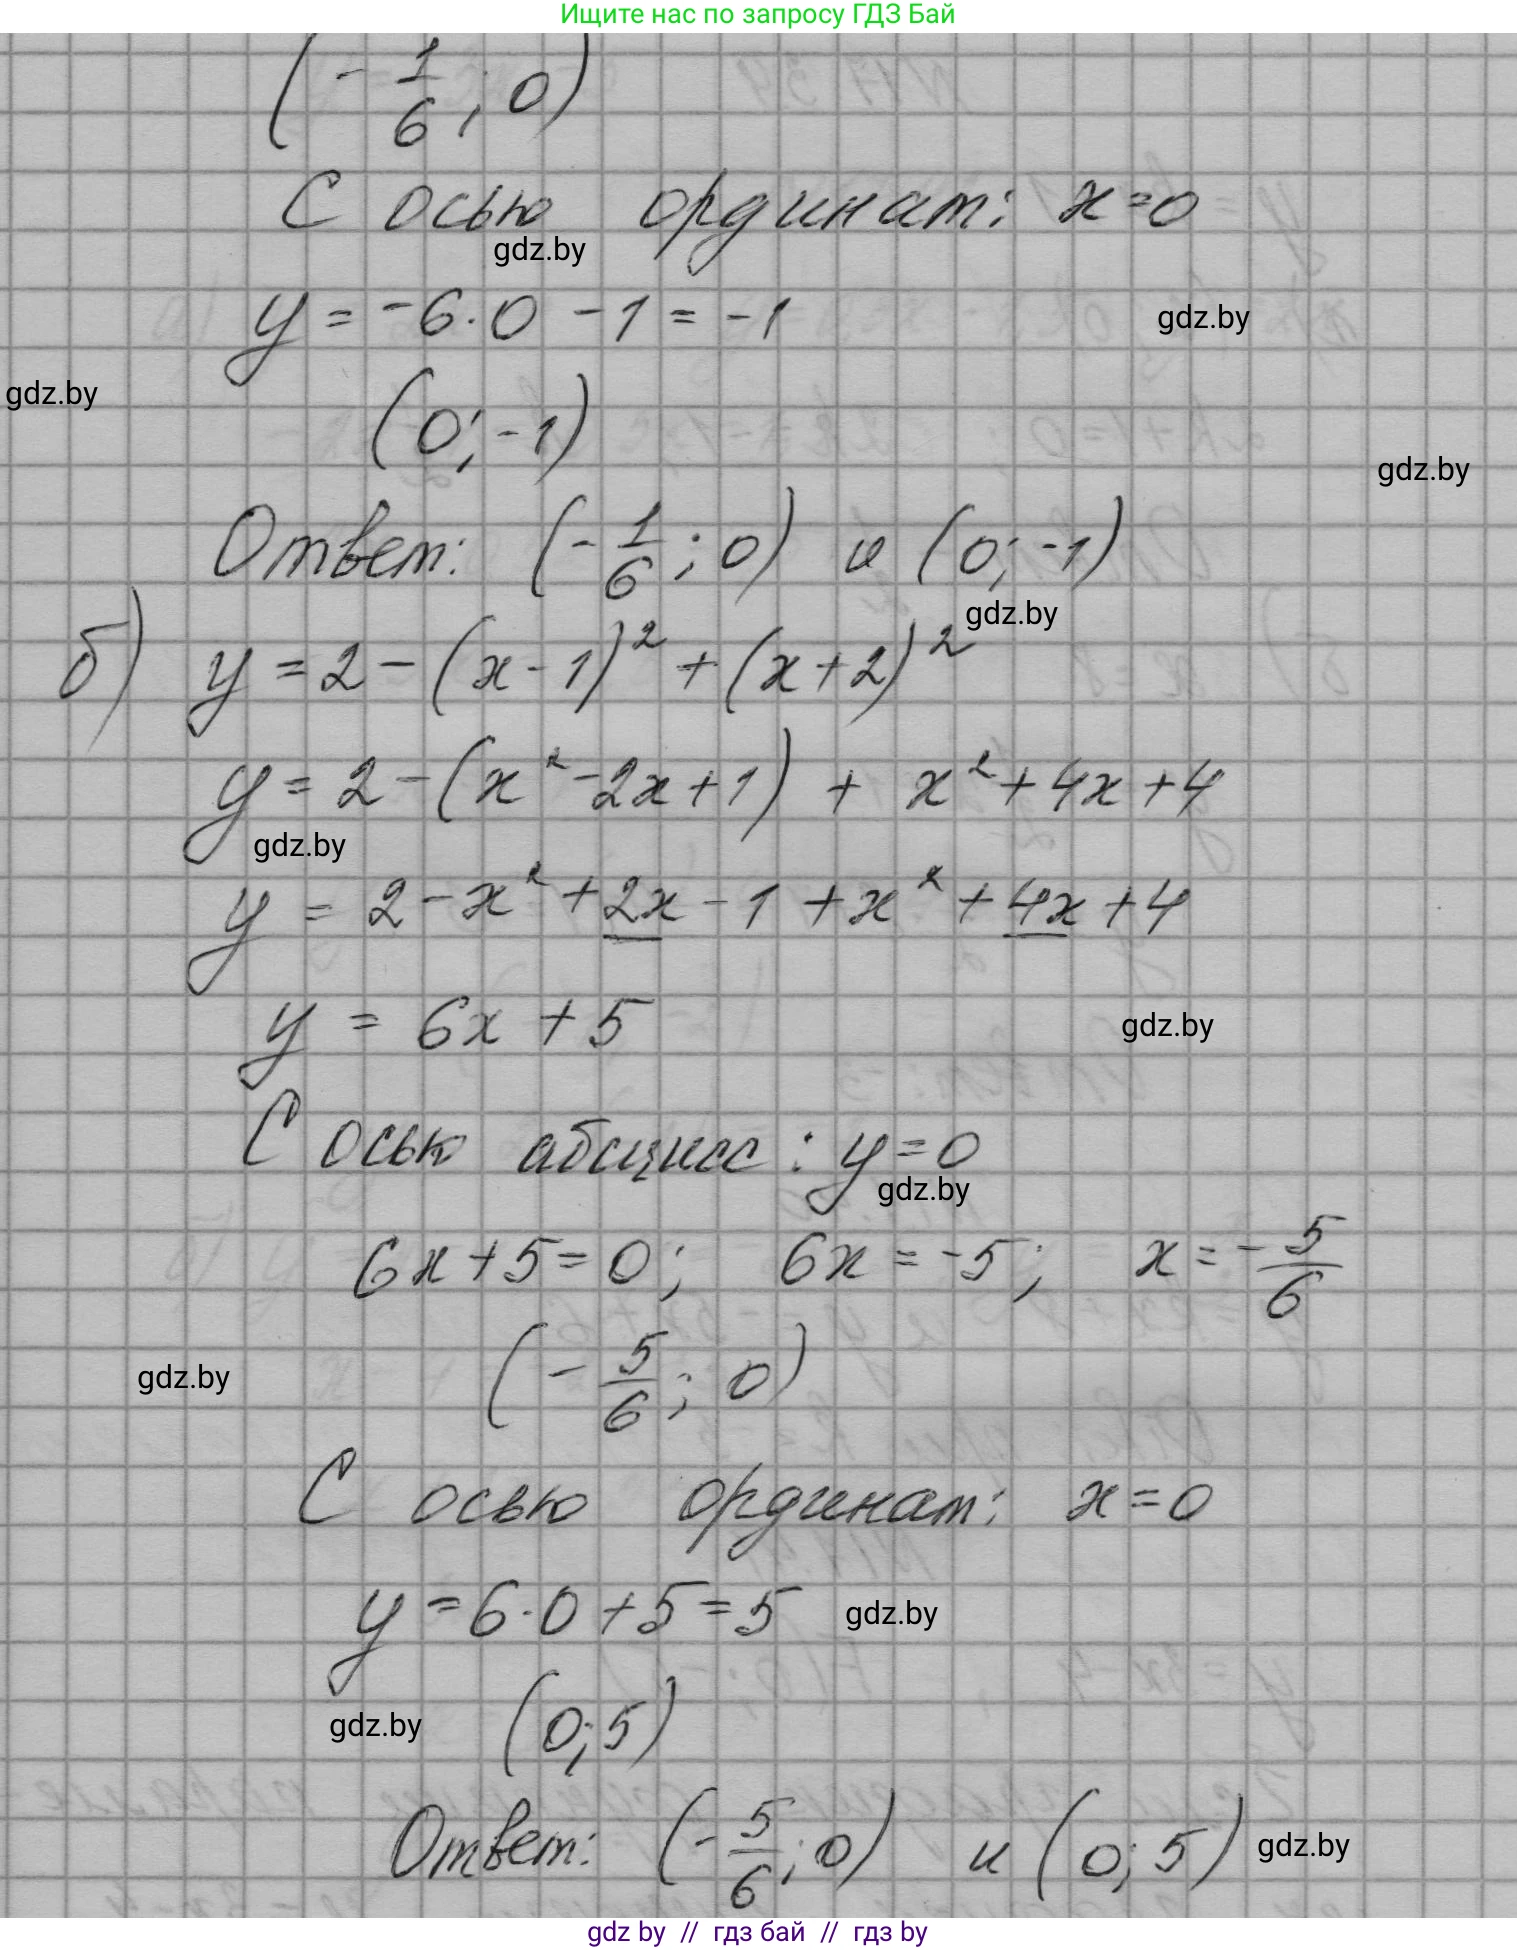 Ищите нас по запросу ГДЗ Бай
(-1/6; 0)
С осью ординат: x=0
gdz.by
y = -6·0 -1 = -1
gdz.by
gdz.by
(0; -1)
gdz.by
Ответ: (-1/6; 0) и (0; -1)
gdz.by
б) y = 2 - (x-1)² + (x+2)²
y = 2 - (x² - 2x + 1) + x² + 4x + 4
gdz.by
y = 2 - x² + 2x - 1 + x² + 4x + 4
y = 6x + 5
gdz.by
С осью абсцисс: y=0
gdz.by
6x+5=0; 6x = -5; x = -5/6
(-5/6; 0)
gdz.by
С осью ординат: x=0
y = 6·0 + 5 = 5
gdz.by
(0; 5)
gdz.by
Ответ: (-5/6; 0) и (0; 5)
gdz.by
gdz by // гдз бай // гдз by